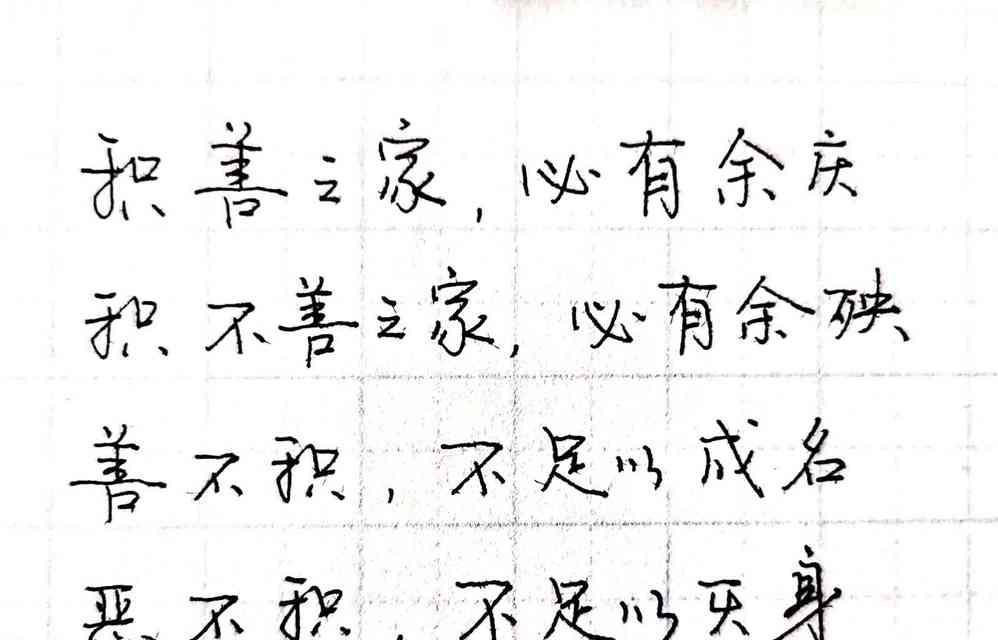 积善之家,必有余庆
积不善之家,必有余殃
善不积,不足以成名
恶不积,不足以灭身